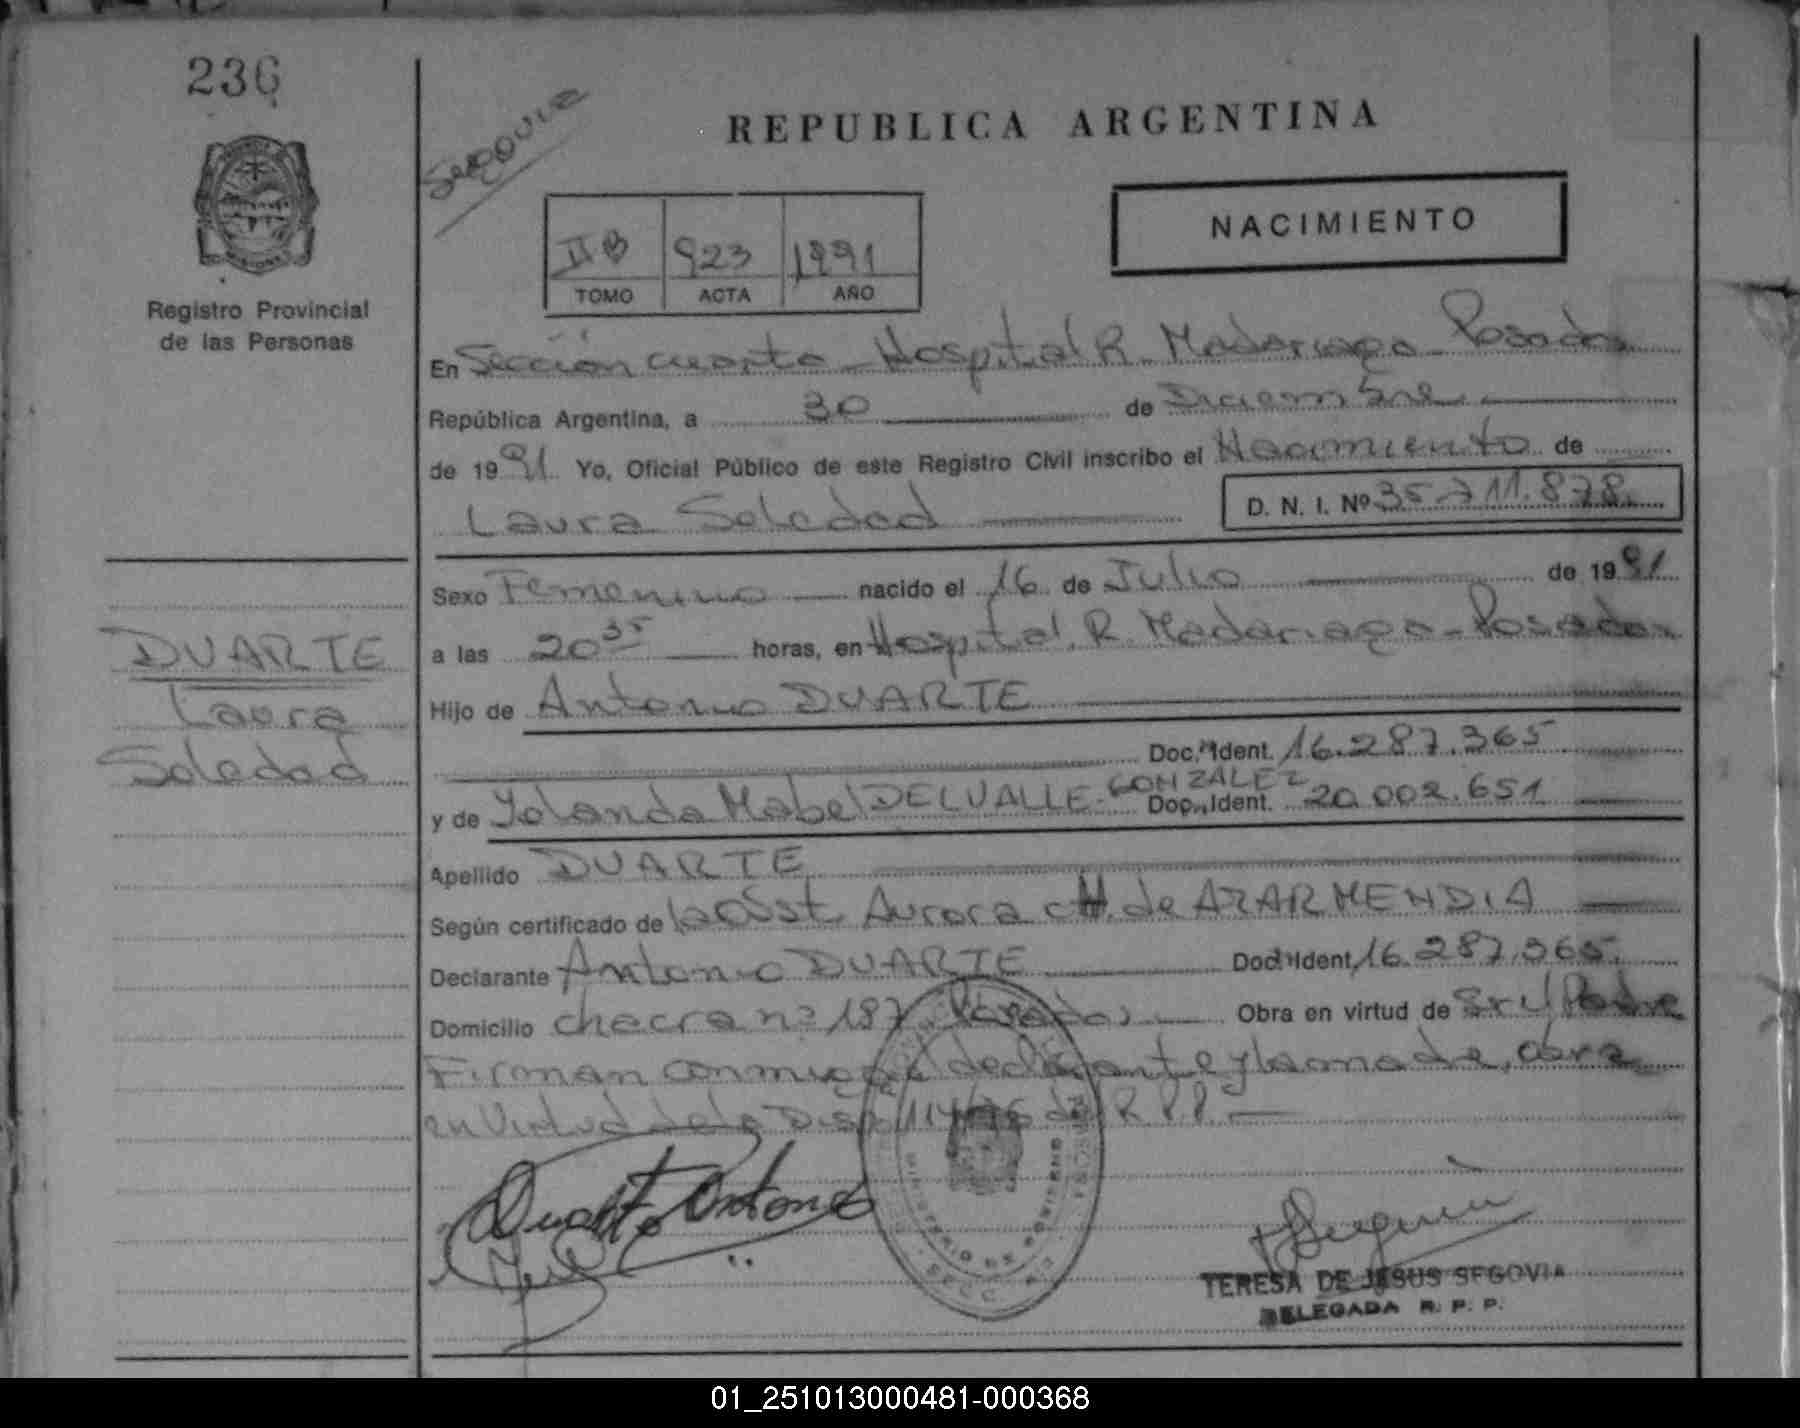 236
Registro Provincial
de las Personas
DUARTE
Laura
Soledad
Segovia
REPUBLICA ARGENTINA
NACIMIENTO
II B 923 1991
TOMO ACTA AÑO
En Sección cuarta - Hospital R. Madariaga - Posadas
República Argentina, a 30 de Diciembre
de 1991 Yo, Oficial Público de este Registro Civil inscribo el Nacimiento de
Laura Soledad D. N. I. Nº 35.711.878
Sexo Femenino nacido el 16 de Julio de 1991
a las 20 35 horas, en Hospital R. Madariaga - Posadas
Hijo de Antonio DUARTE
Doc. Ident. 16.287.365
y de Yolanda Mabel DELVALLE GONZALEZ Doc. Ident. 20.002.651
Apellido DUARTE
Según certificado de la Obst. Aurora de AZARMENDIA
Declarante Antonio DUARTE Doc. Ident. 16.287.365
Domicilio chacra nº 187 Posadas Obra en virtud de Ser el Padre
Firman conmigo el declarante y la madre, obra
en Virtud de la Disp. del R.P.P.
Duarte Antonio
MINISTERIO DE GOBIERNO
TERESA DE JESUS SEGOVIA
DELEGADA R. P. P.
01_251013000481-000368